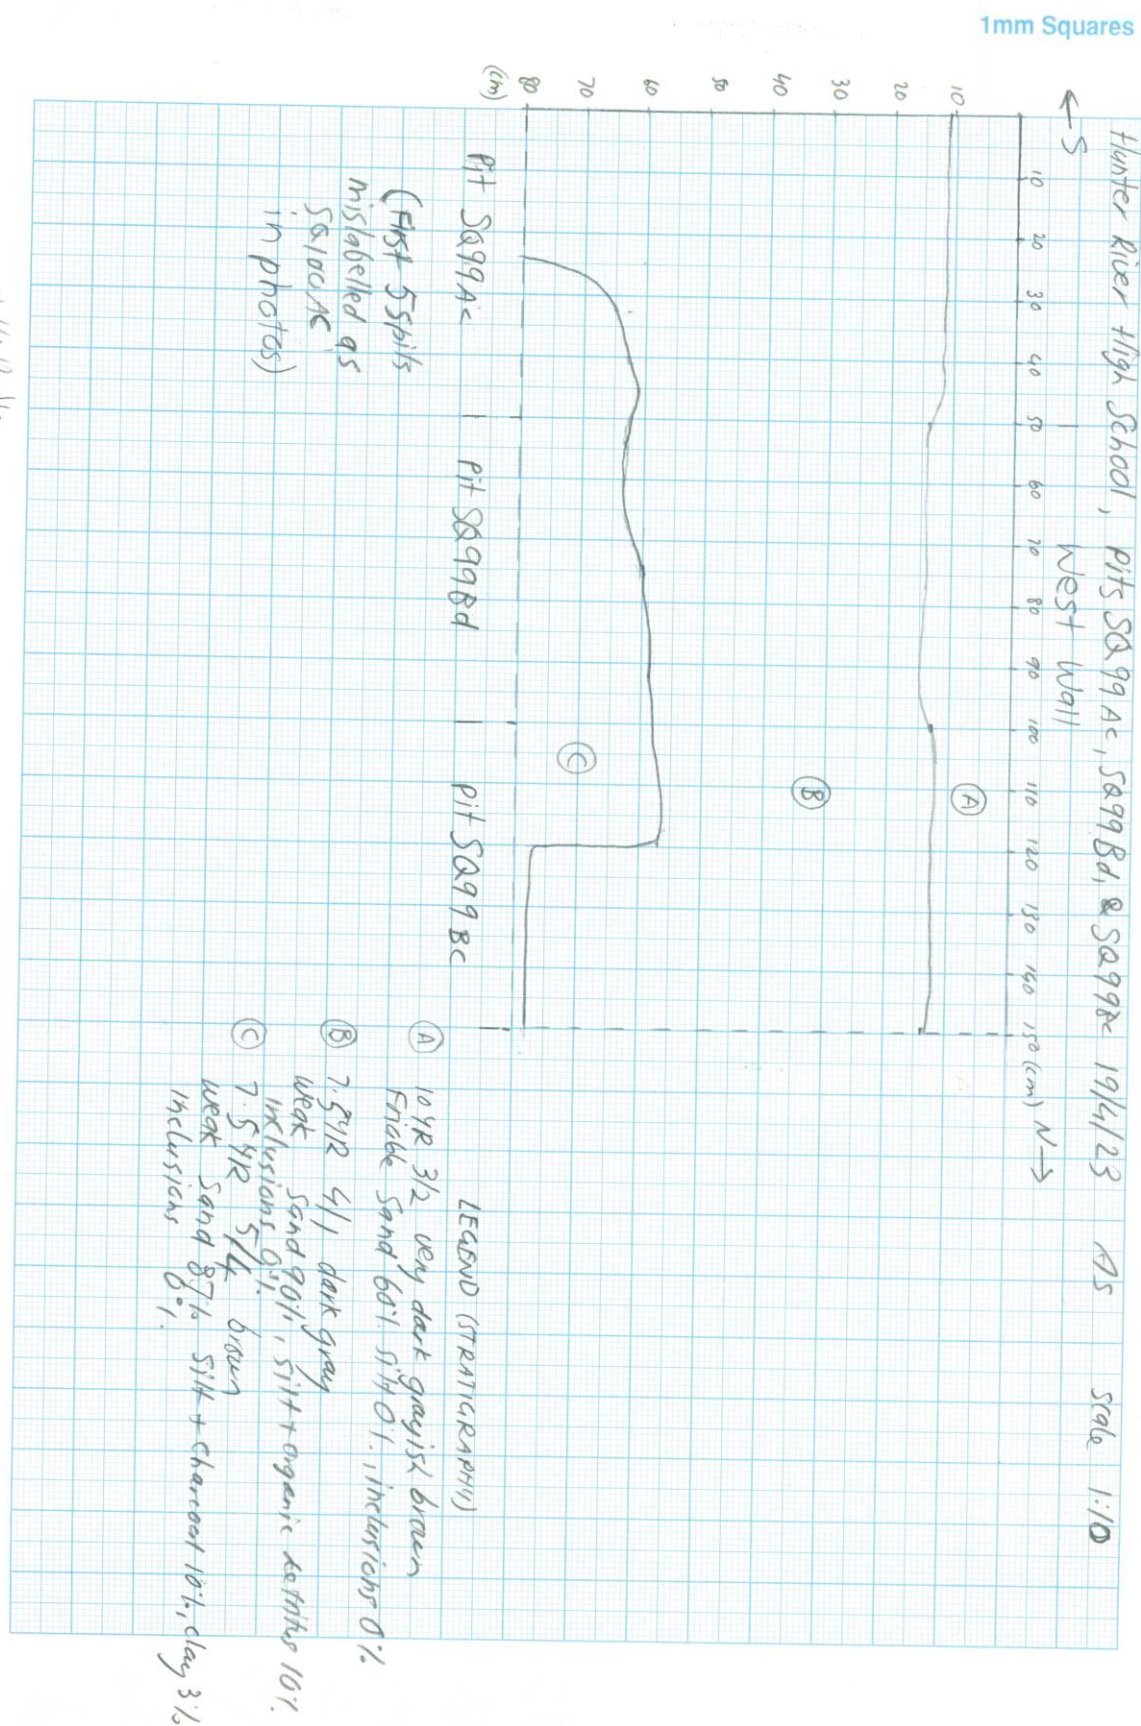 1mm Squares
Hunter River High School, Pits SQ99Ac, SQ99Bd, & SQ99Bc 19/4/23 AS Scale 1:10
←S West Wall N→
10 20 30 40 50 60 70 80 90 100 110 120 130 140 150 (cm)
10
20
30
40
50
60
70
80
(cm)
A
B
C
Pit SQ99Ac | Pit SQ99Bd | Pit SQ99Bc
(First 5 Spits
mislabelled as
SQ100Ac
in photos)
LEGEND (STRATIGRAPHY)
A 10YR 3/2 very dark grayish brown
Friable Sand 60% silt 0%, inclusions 0%
B 7.5YR 4/1 dark gray
Weak Sand 90%, silt + organic detritus 10%
inclusions 0%
C 7.5YR 5/4 brown
Weak Sand 87% silt + charcoal 10%, clay 3%
inclusions 0%.